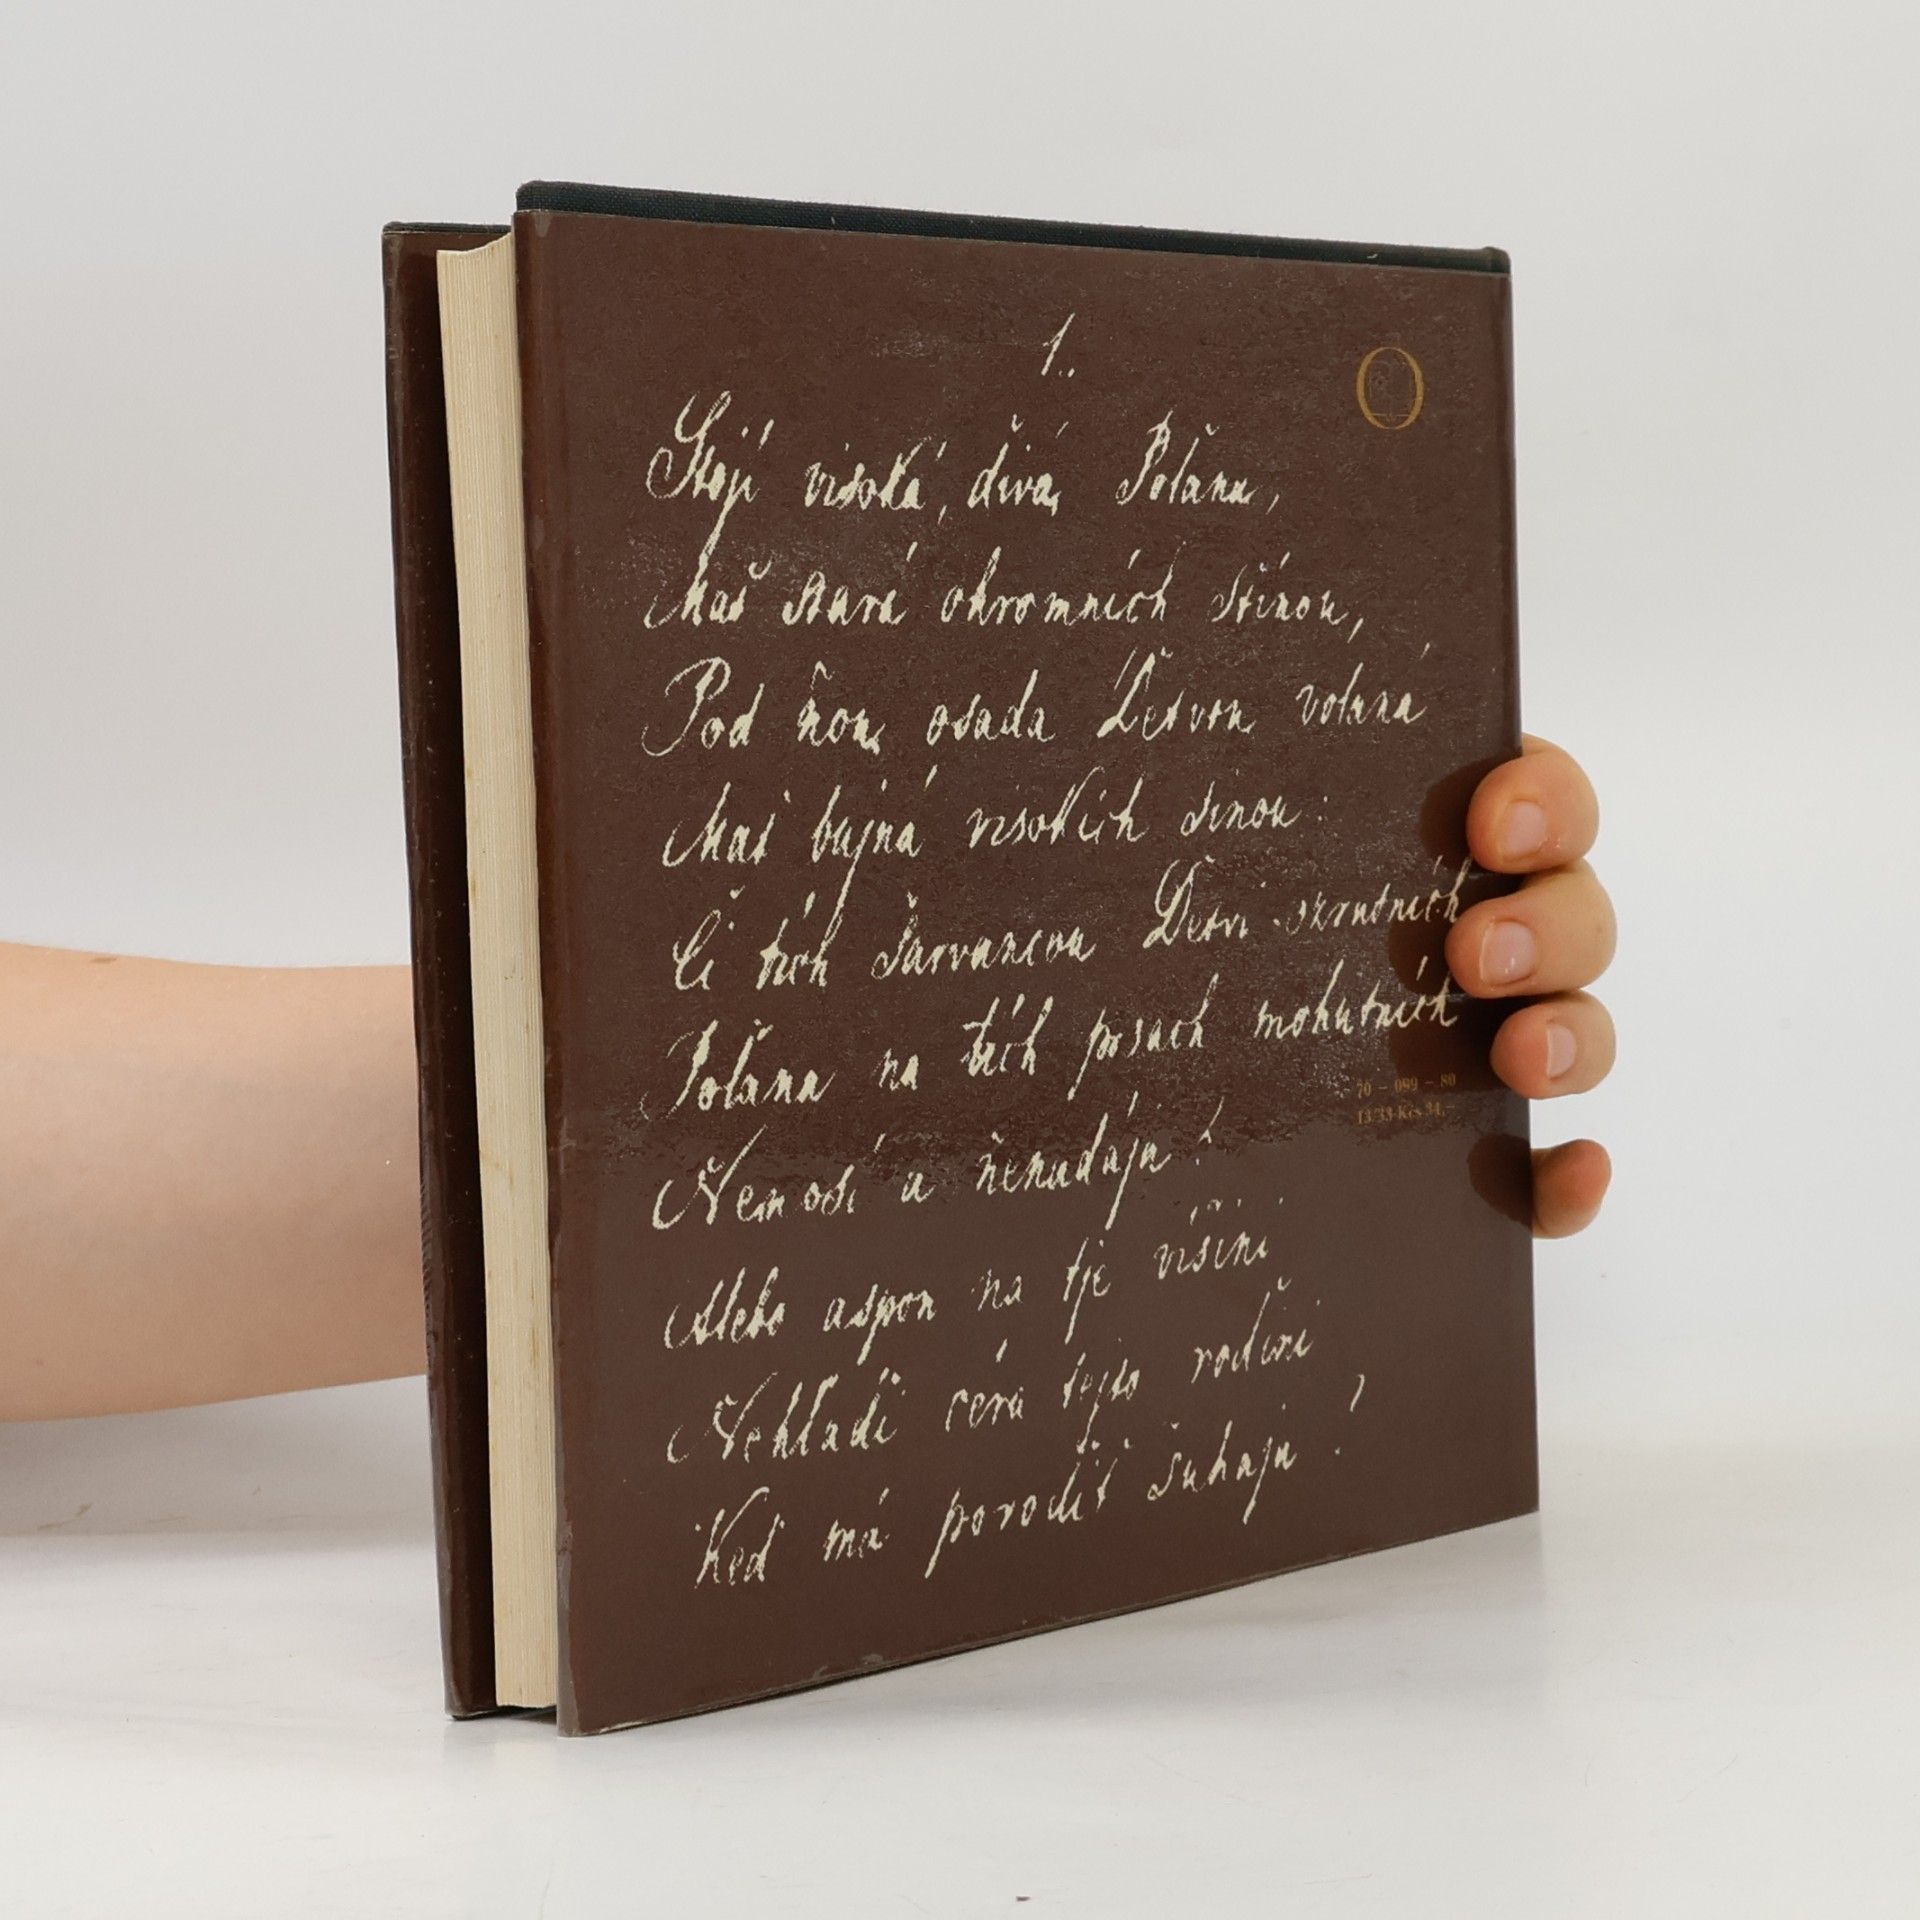 1.
Stojí visoká, ďivá Polana,
Mať stará ohromních sťínou,
Pod ňou osada Ďetvou volaná
Mať bujná visokích sinou:
Či tích šarvancou Ďetvi ozrutních
Polana na tích prsach mohutních
Ňenosí a ňenadája?
Alebo aspon na tje višini
Ňehladí céra tejto roďini
Keď má poroďiť šuhaja?
70 – 099 – 80
13/33 Kčs 34,–